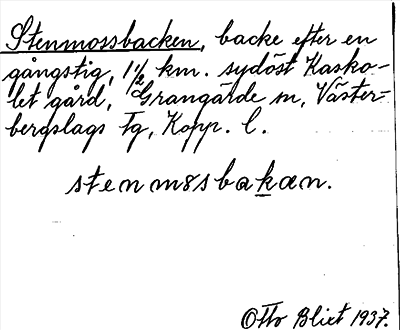 Stenmossbacken, backe efter en
gångstig, 1½ km. sydöst Kasko-
let gård, Grangärde sn, Väster-
bergslags Fg, Kopp. l.
stenmɷsbakan.
Otto Blixt 1937.